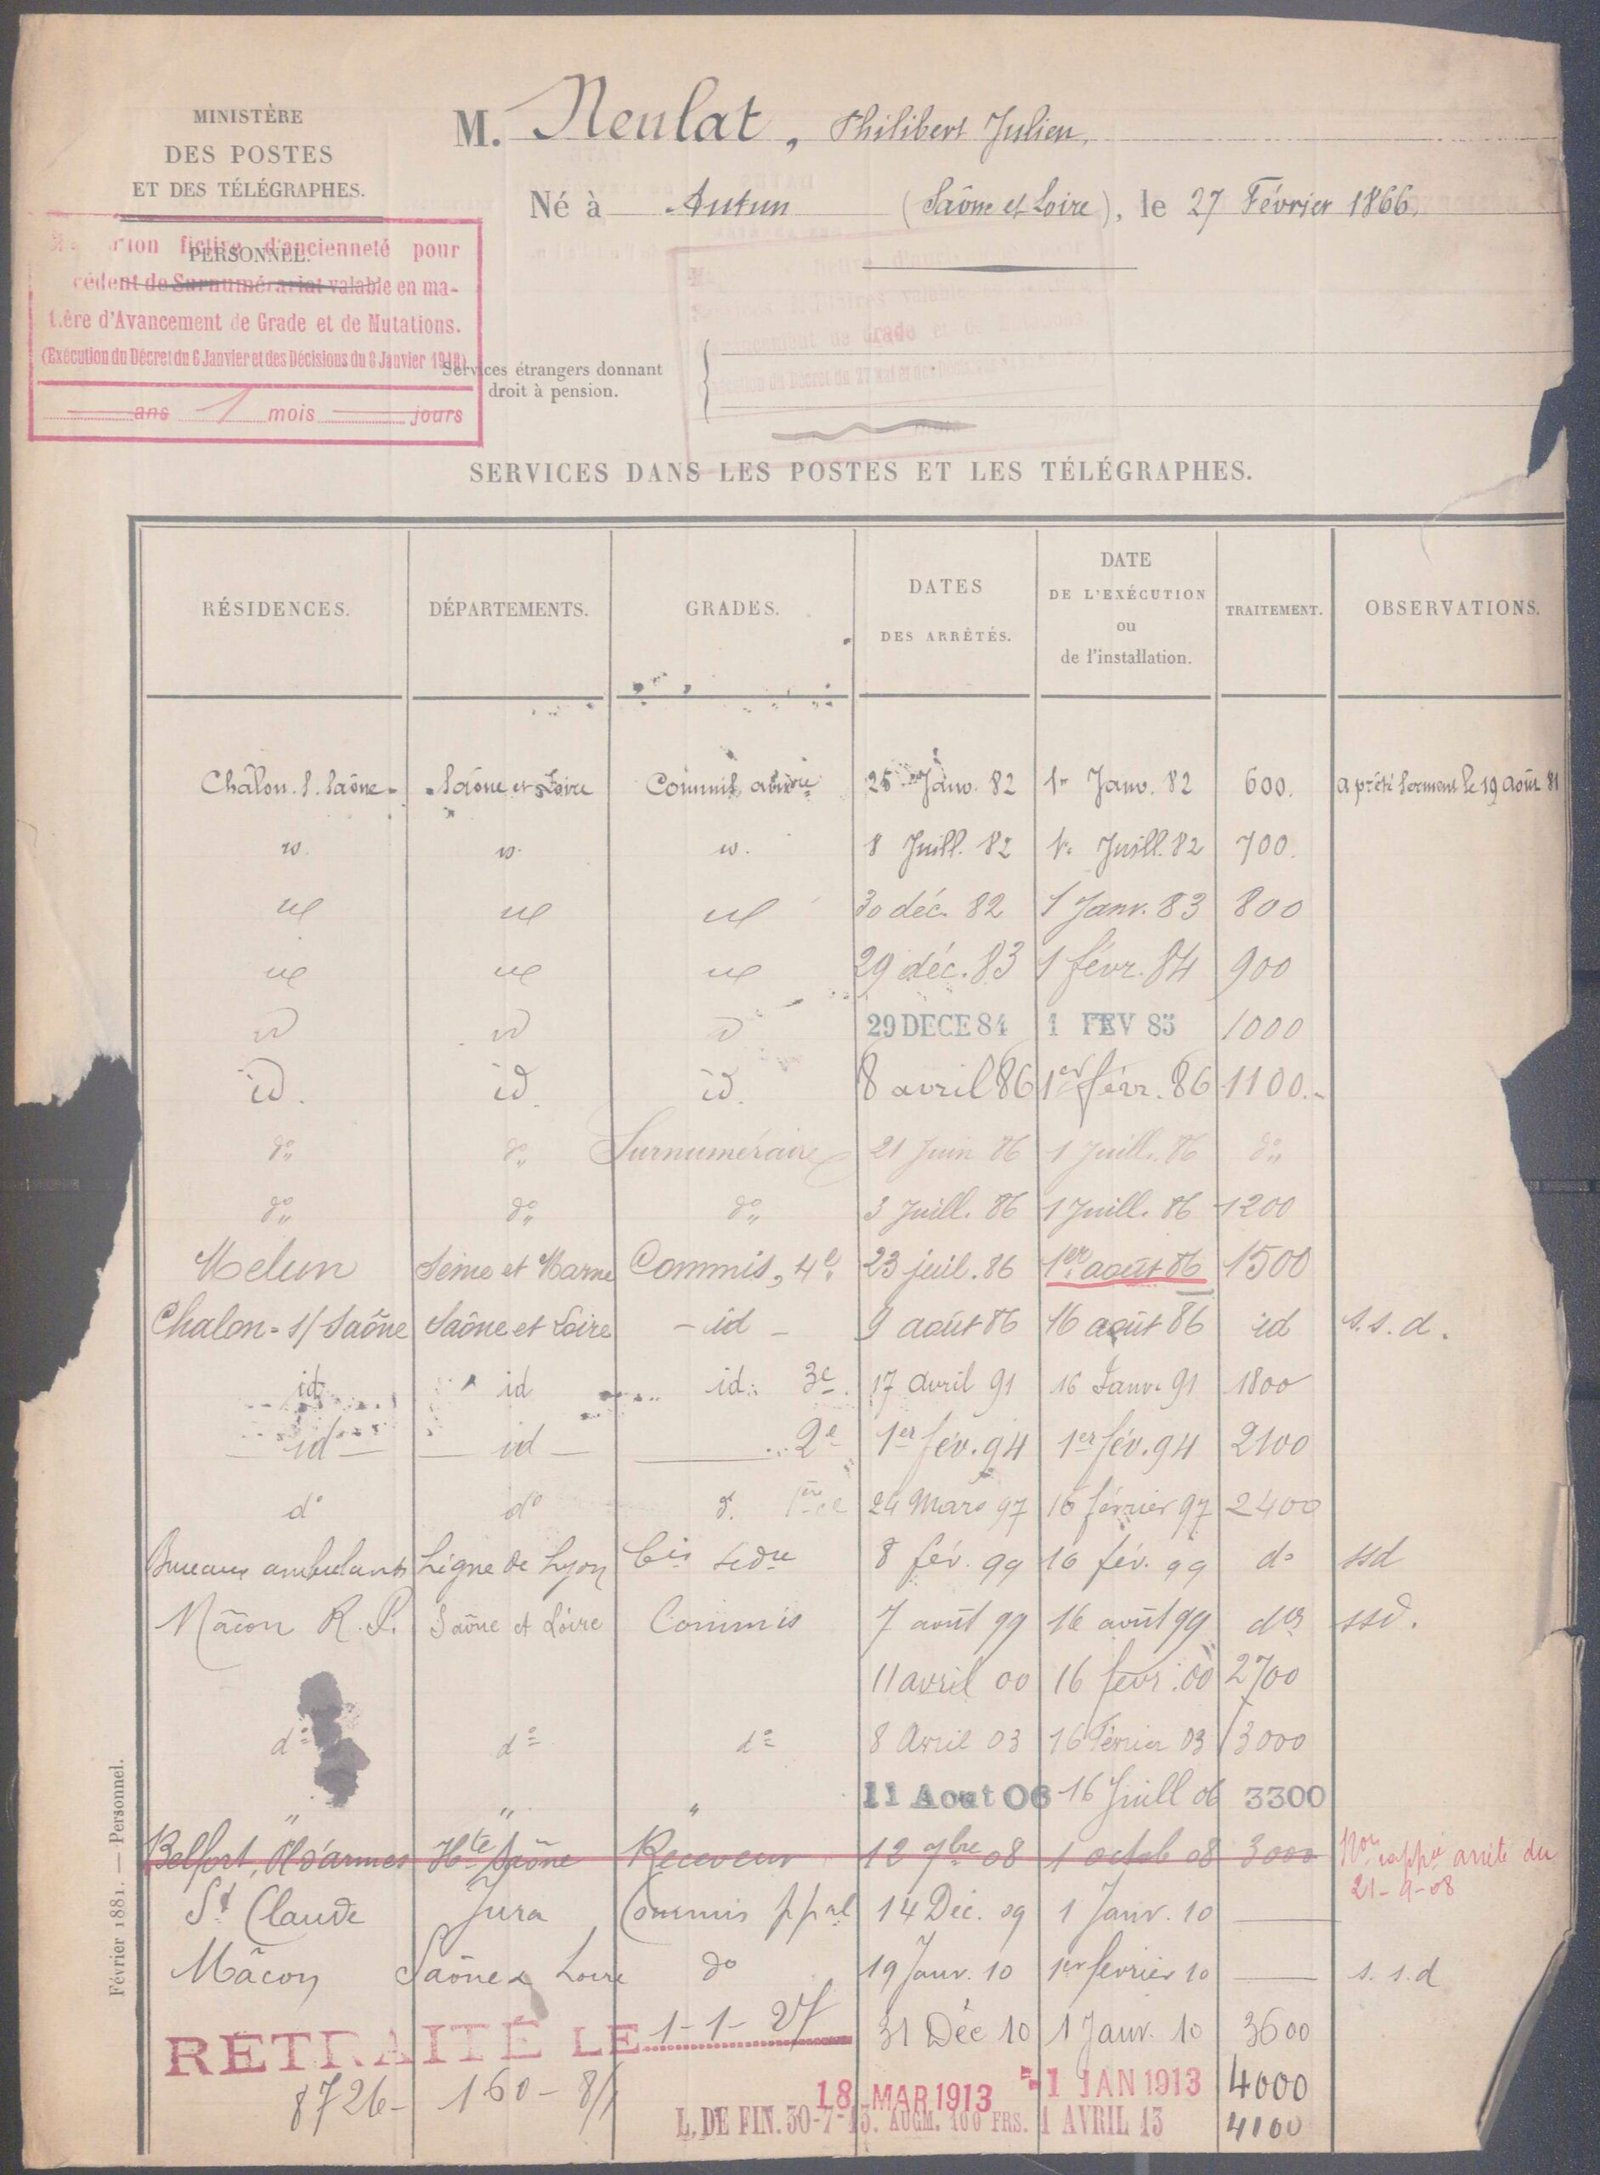 MINISTÈRE
DES POSTES
ET DES TÉLÉGRAPHES.
PERSONNEL.
M. Neulat, Philibert Julien.
Né à Autun (Saône et Loire), le 27 Février 1866.
fictive d'ancienneté pour
de Surnumérariat valable en ma-
tière d'Avancement de Grade et de Mutations.
(Exécution du Décret du 6 Janvier et des Décisions du 8 Janvier 1918)
ans 1 mois jours
Services étrangers donnant
droit à pension.
SERVICES DANS LES POSTES ET LES TÉLÉGRAPHES.
RÉSIDENCES. DÉPARTEMENTS. GRADES. DATES DES ARRÊTÉS. DATE DE L'EXÉCUTION ou de l'installation. TRAITEMENT. OBSERVATIONS.
Châlon. s. Saône Saône et Loire Commis 25 Janv. 82 1er Janv. 82 600. a prêté serment le 19 août 81
id. id. id. 8 Juill. 82 1er Juill. 82 700.
id id id 30 déc. 82 1 Janv. 83 800
id id id 29 déc. 83 1 févr. 84 900
id id id 29 DECE 84 1 FEV 85 1000
id. id. id. 8 avril 86 1er févr. 86 1100.-
do do Surnuméraire 21 Juin 86 1 Juill. 86 do
do do do 3 Juill. 86 1 Juill. 86 1200
Melun Seine et Marne Commis, 4e 23 juil. 86 1er août 86 1500
Chalon-s/Saône Saône et Loire - id - 9 août 86 16 août 86 id s.s.d.
id id id. 3e 17 avril 91 16 Janv. 91 1800
id id 2e 1er fév. 94 1er fév. 94 2100
do do d. 1ère cl 24 Mars 97 16 février 97 2400
Bureaux ambulants Ligne de Lyon Cis 8 fév. 99 16 fév. 99 do ssd
Mâcon R. P. Saône et Loire Commis 7 août 99 16 août 99 do ssd.
11 avril 00 16 févr. 00 2700
do do do 8 Avril 03 16 Février 03 3000
" " " 11 Aout 06 16 Juill 06 3300
Belfort, Pl. d'armes Hte Saône Receveur 12 7bre 08 1 octob 08 3000 Non arrêté du
21-9-08
St Claude Jura Commis ppal 14 Déc. 09 1 Janv. 10
Mâcon Saône & Loire do 19 Janv. 10 1er février 10 s.s.d
RETRAITÉ LE 1-1-27 31 Déc 10 1 Janv. 10 3600
8726- 160- 8/1 18 MAR 1913 1 JAN 1913 4000
L. DE FIN. 30-7-13. AUGM. 100 FRS. 1 AVRIL 13 4100
Février 1881. — Personnel.